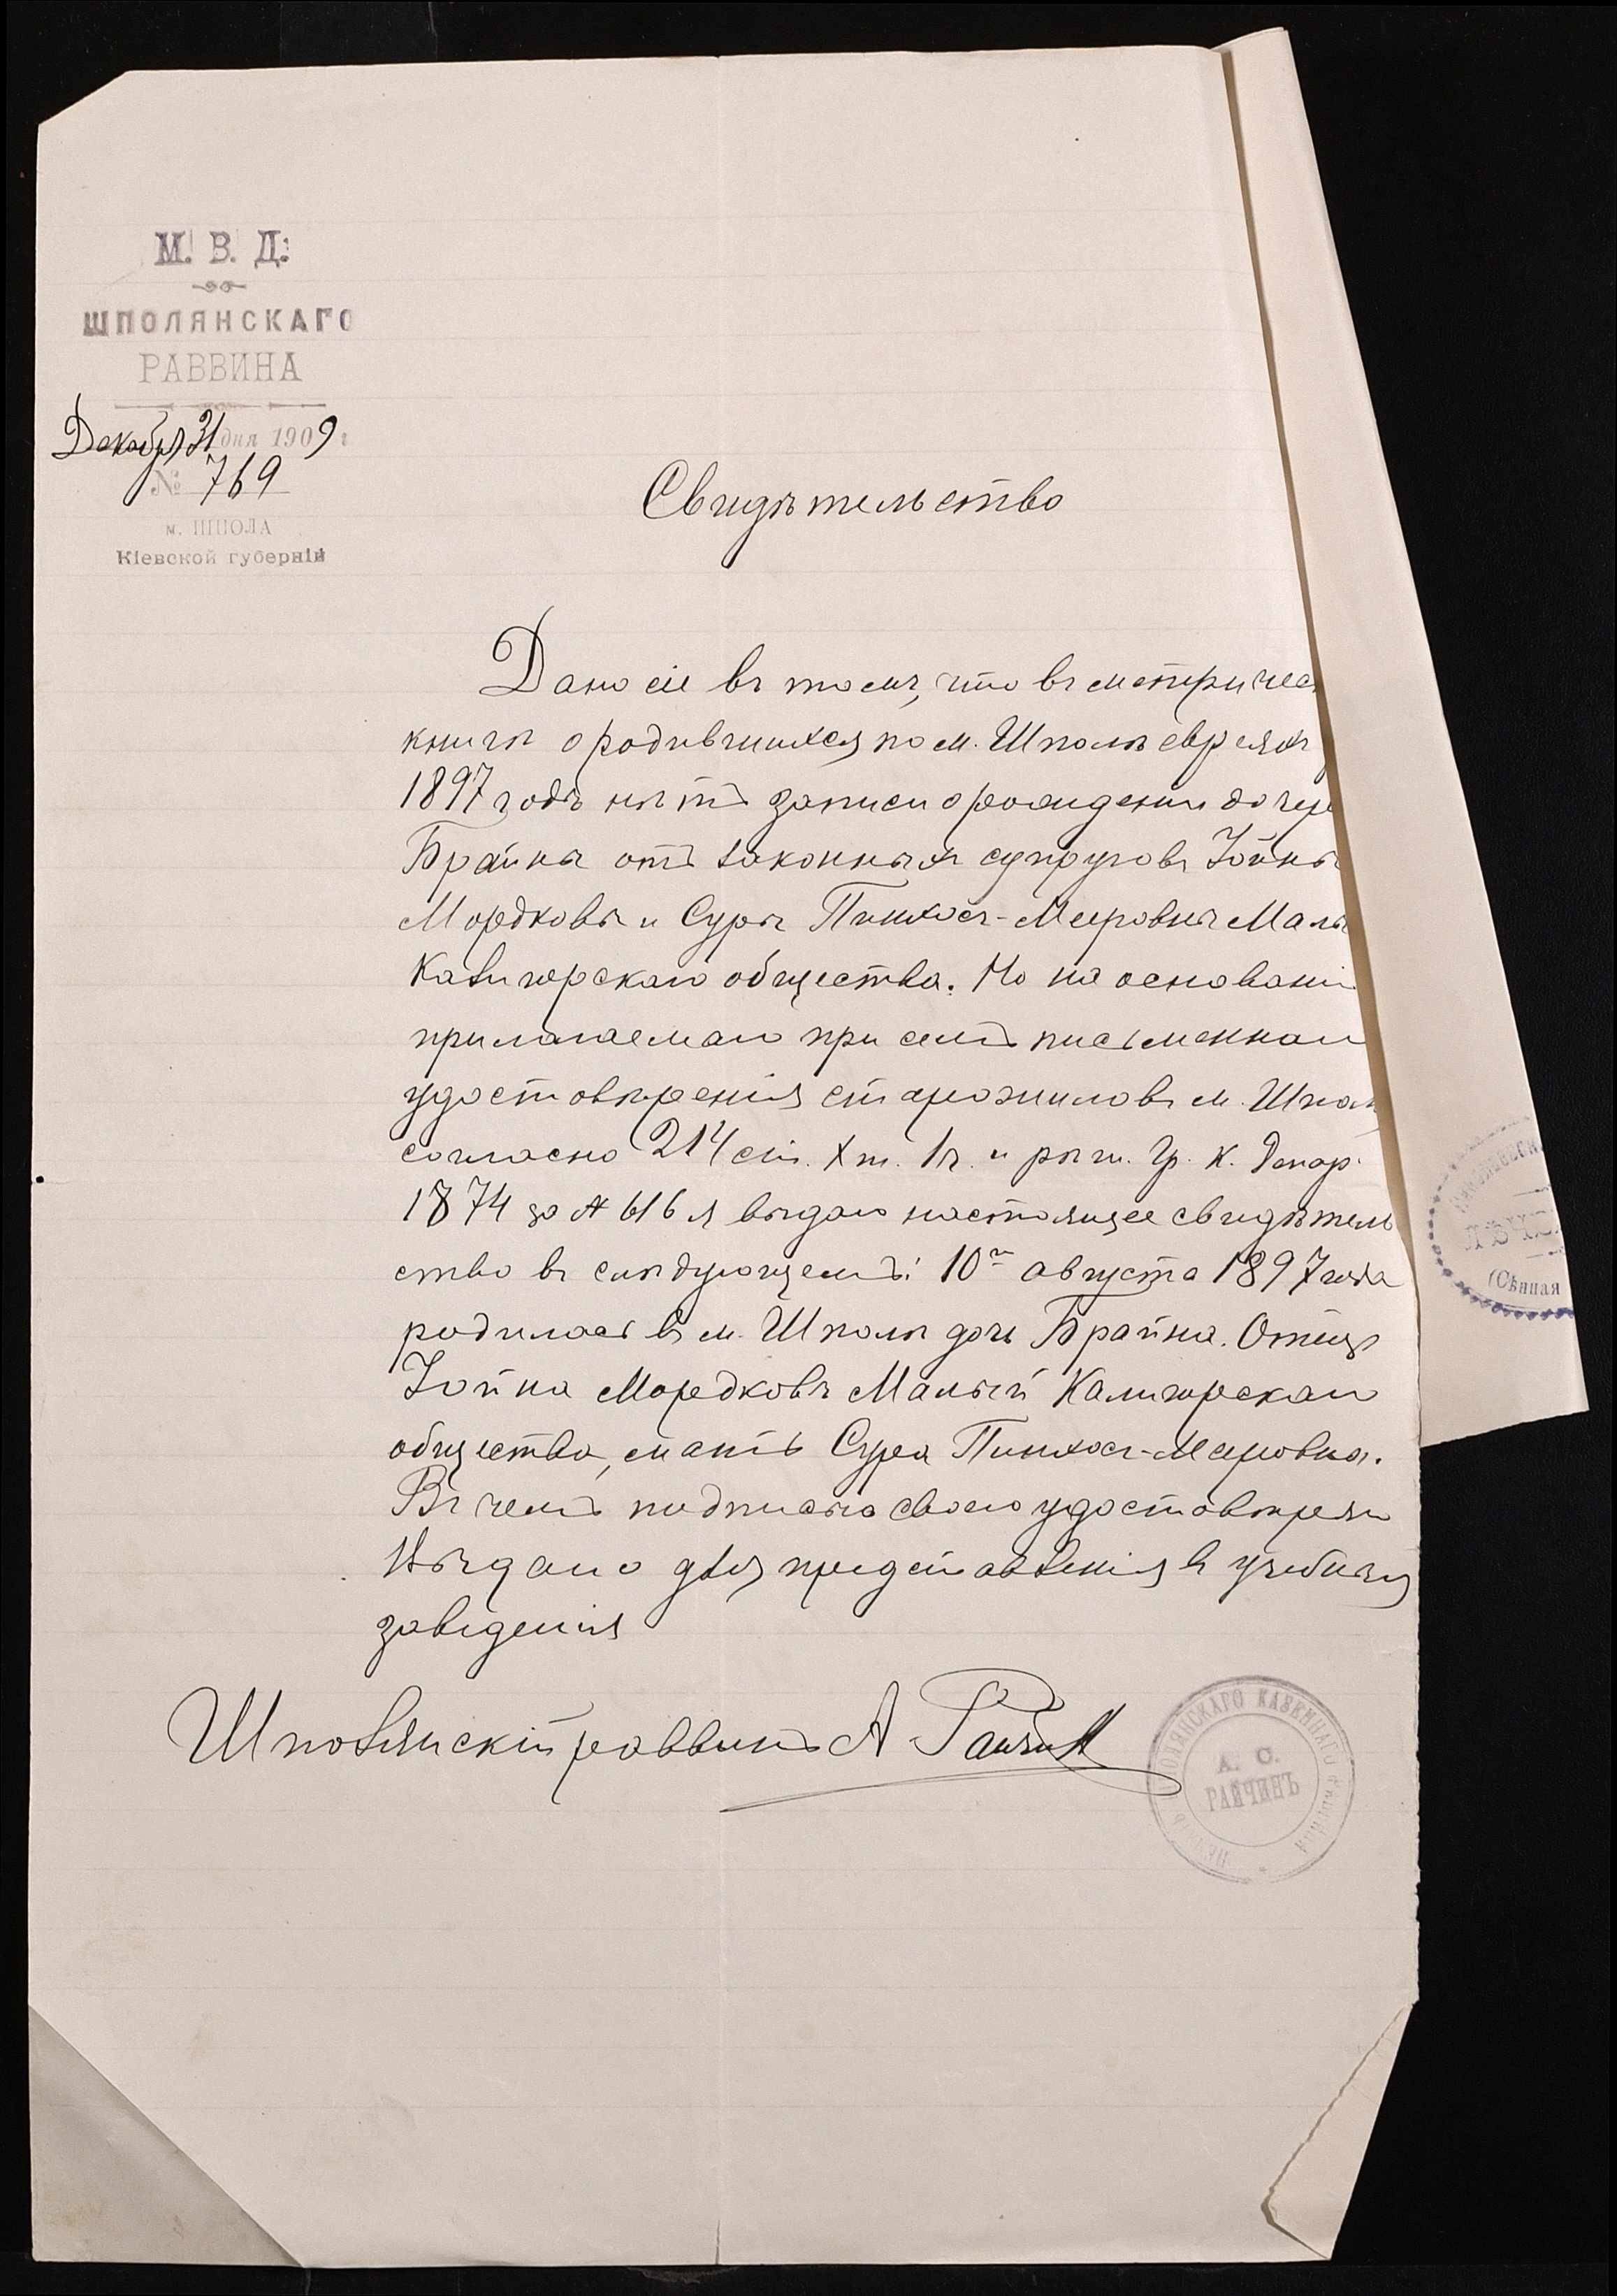 М. В. Д.
ШПОЛЯНСКАГО
РАВВИНА
Декабря 31 дня 1909 г
№ 769
м. ШПОЛА
Кіевской губерніи
Свидѣтельство
Дано сіе въ томъ, что въ метричес
книгѣ о родившихся по м. Шполѣ евреяхъ
1897 годъ нѣтъ записи о рождении дочери
Брайны отъ законныхъ супруговъ Іойны
Мордковъ и Суры Пинхосъ-Меировны Малы
Калигорскаго общества. Но на основаніи
прилагаемаго при семъ письменнаго
удостовѣренія старожиловъ м. Шпол
согласно 214 ст. X т. 1 ч. и рѣш. Гр. К. Депар.
1874 за № 616 я выдаю настоящее свидѣтель
ство въ слѣдующемъ: 10го августа 1897 года
родилась въ м. Шполѣ дочь Брайна. Отецъ
Іойна Мордковъ Малый Калигорскаго
общества, мать Сура Пинхосъ-Меировна.
Въ чемъ подписью своею удостовѣряю
Выдано для представленія въ учебныя
заведенія
Шполянскій раввинъ А Райчинъ
ШПОЛЯНСКАГО КАЗЕННАГО РАВВИНА
А. С.
РАЙЧИНЪ
(Сѣнная